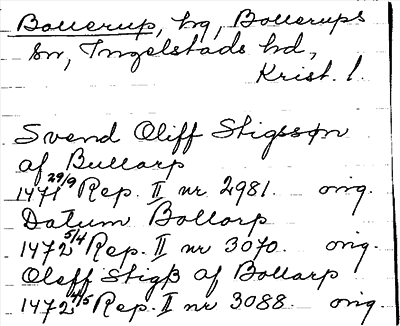 Bollerup, hg, Bollerups
sn, Ingelstads hd,
Krist. l.
Svend Oliff Stigsson
af Bullarp
1471 29/9 Rep. II nr 2981. orig.
Datum Bollorp
1472 5/4 Rep. II nr 3070. orig.
Oleff Stigß af Bollarp
1472 /5 Rep. II nr 3088. orig.